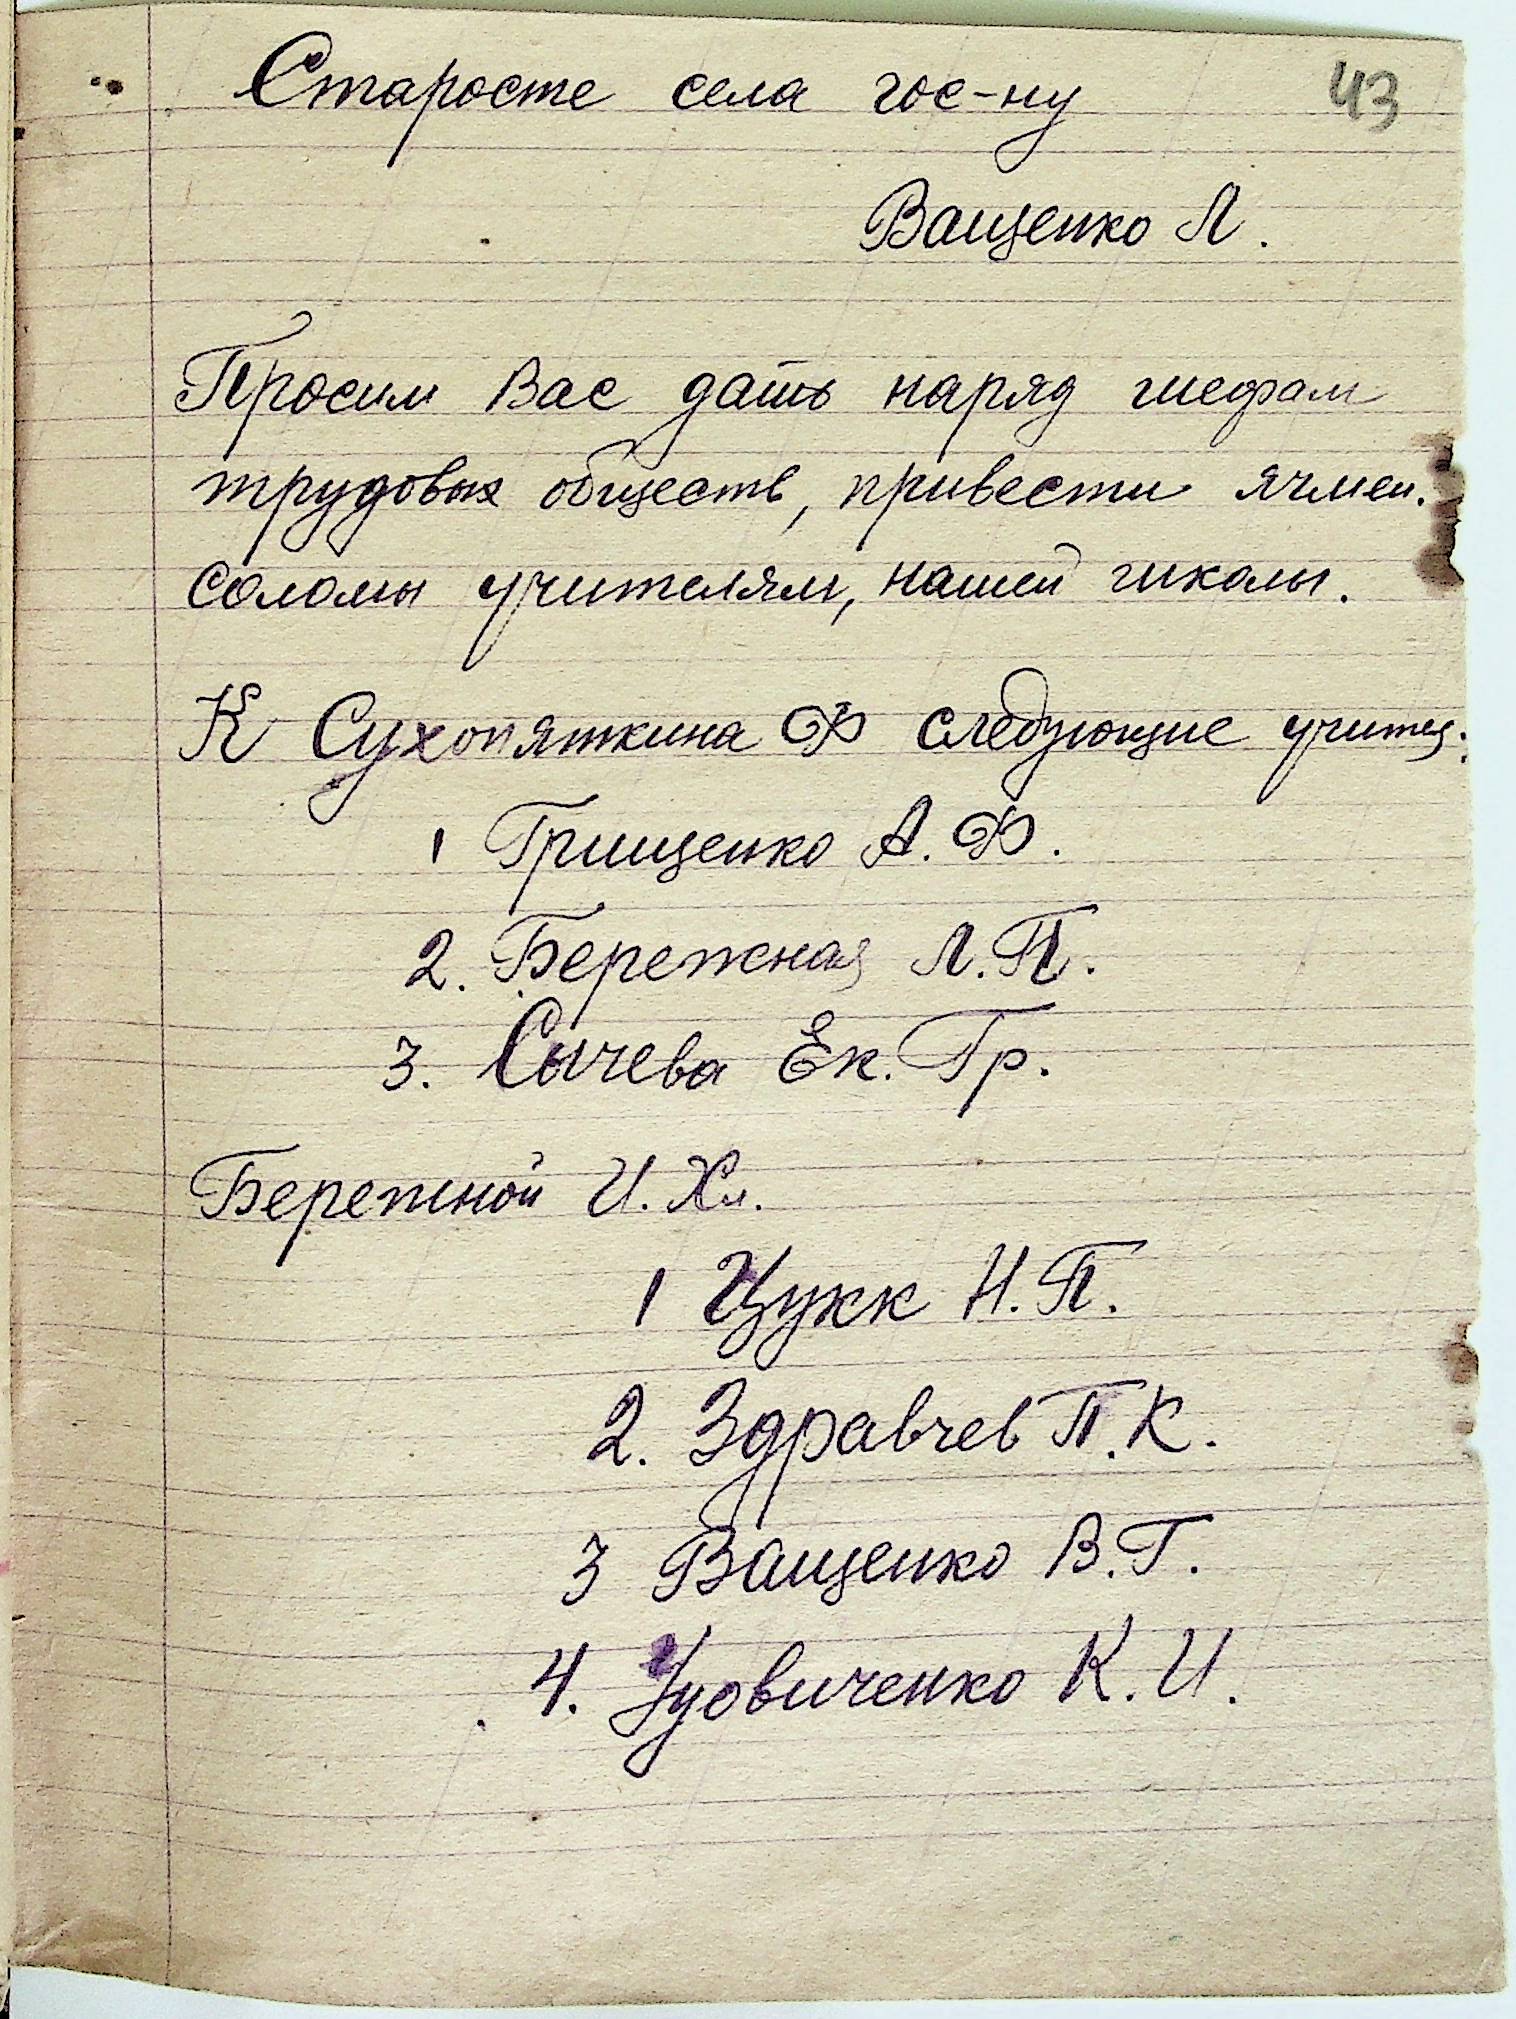 Старосте села гос-ну
43
Ващенко Л.
Просим Вас дать наряд шефам
трудовых обществ, привести ячмен.
соломы учителям, нашей школы.
К Сухопяткина Ф следующие учител.
1 Грищенко А. Ф.
2. Бережная Л. П.
3. Сычева Ек. Гр.
Бережной И. Хл.
1 Цукк Н. П.
2. Здравчев П. К.
3 Ващенко В. Г.
4. Удовиченко К. И.